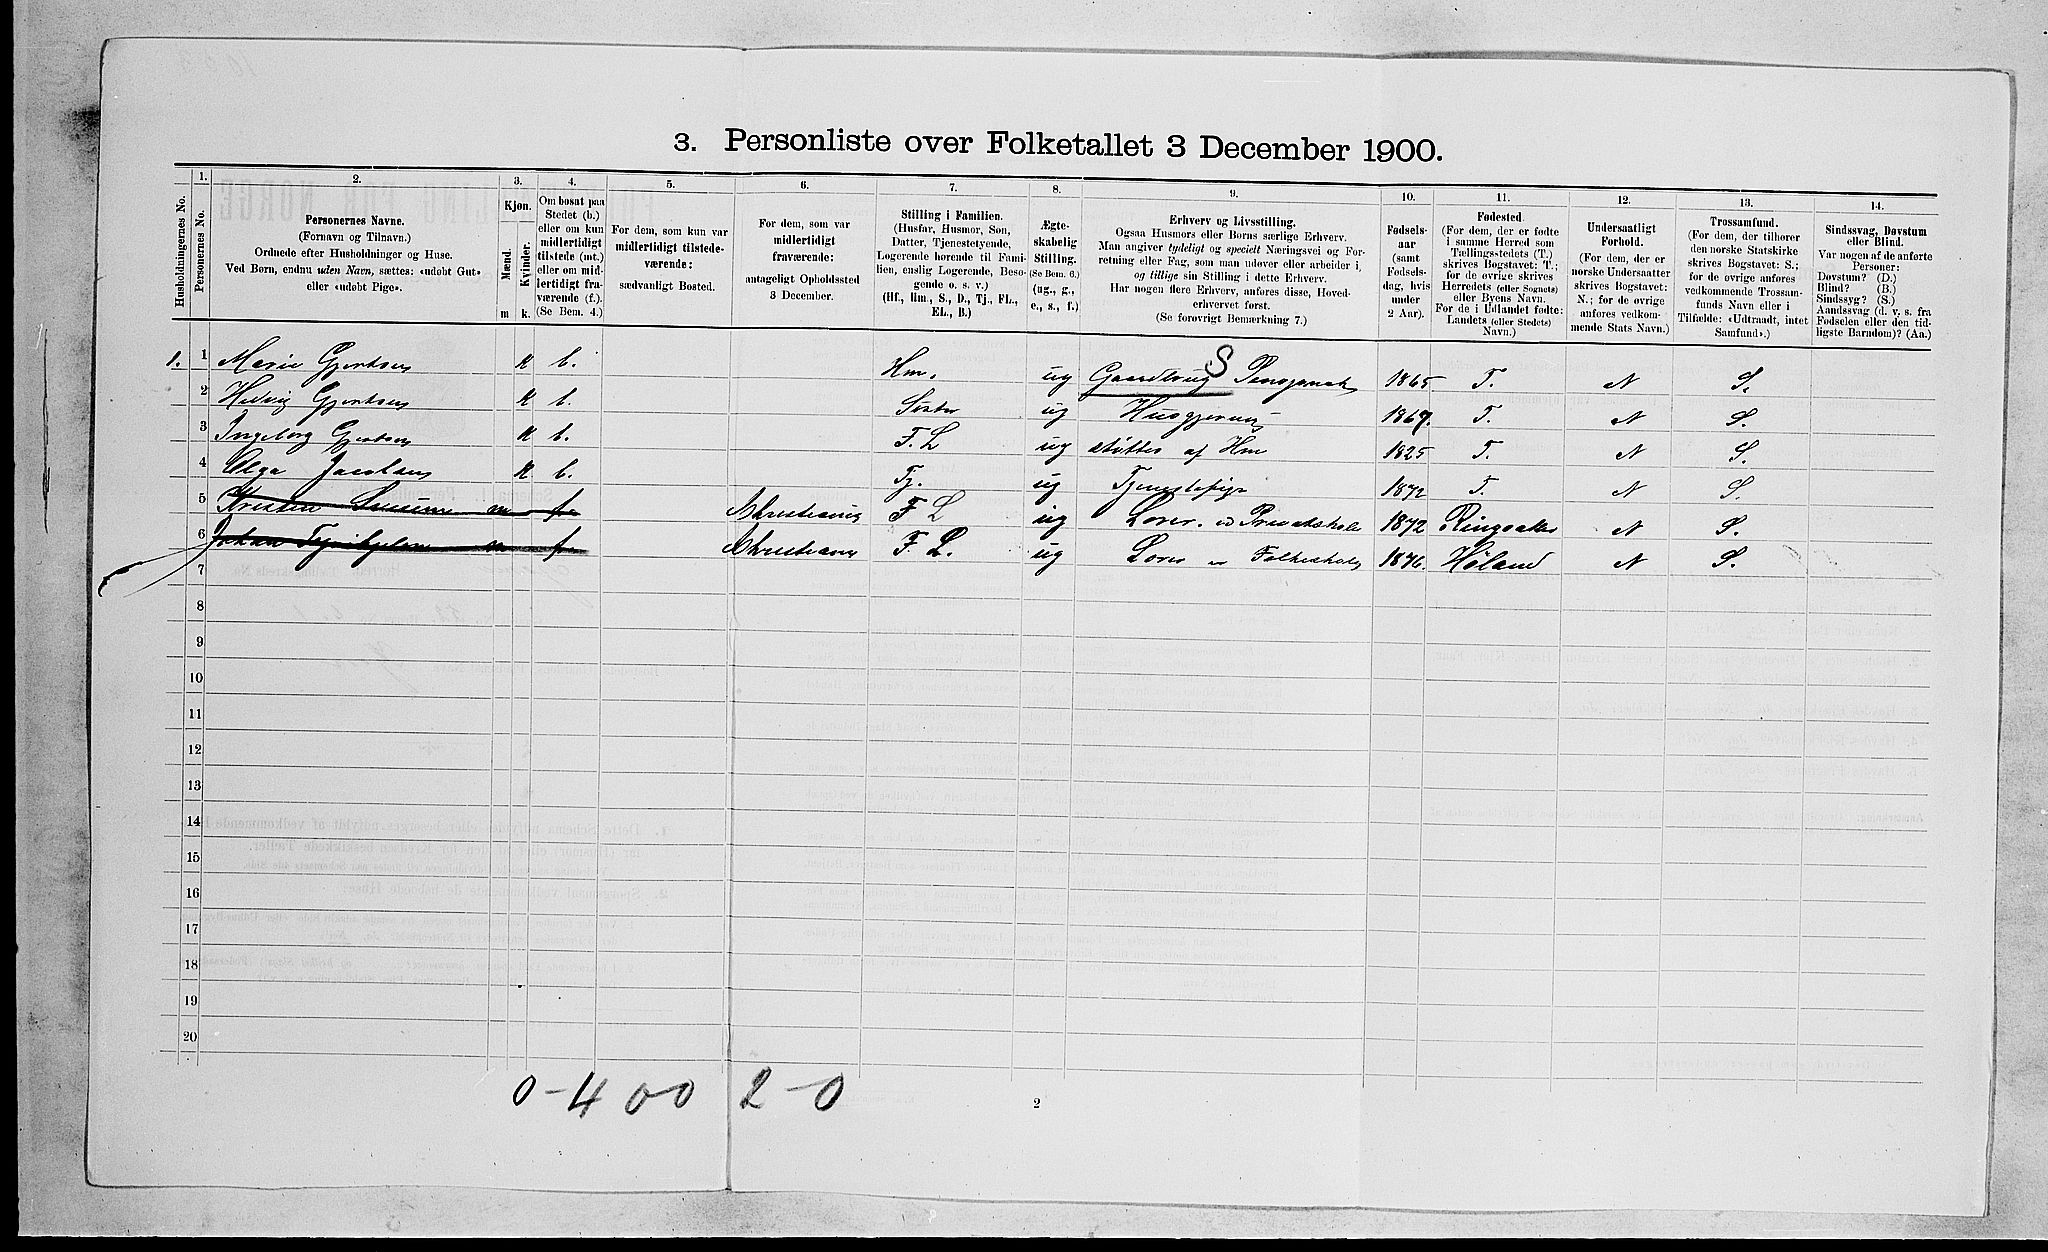 3. Personliste over Folketallet 3 December 1900.
Husholdningernes No.
1. Personernes No.
2. Personernes Navne. (Fornavn og Tilnavn.) Ordnede efter Husholdninger og Huse. Ved Børn, endnu uden Navn, sættes: «udøbt Gut» eller «udøbt Pige».
3. Kjøn. Mænd. Kvinder. m k.
4. Om bosat paa Stedet (b.) eller om kun midlertidigt tilstede (mt.) eller om midlertidigt fraværende (f.). (Se Bem. 4.)
5. For dem, som kun var midlertidigt tilstedeværende: sædvanligt Bosted.
6. For dem, som var midlertidigt fraværende: antageligt Opholdssted 3 December.
7. Stilling i Familien. (Husfar, Husmor, Søn, Datter, Tjenestetyende, Logerende hørende til Familien, enslig Logerende, Besøgende o. s. v.) (Hf., Hm., S., D., Tj., FL., EL., B.)
8. Ægteskabelig Stilling. (Se Bem. 6.) (ug., g., e., s., f.)
9. Erhverv og Livsstilling. Ogsaa Husmors eller Børns særlige Erhverv. Man angiver tydeligt og specielt Næringsvei og Forretning eller Fag, som man udøver eller arbeider i, og tillige sin Stilling i dette Erhverv. Har nogen flere Erhverv, anføres disse, Hovederhvervet først. (Se forøvrigt Bemærkning 7.)
10. Fødselsaar (samt Fødselsdag, hvis under 2 Aar).
11. Fødested. (For dem, der er fødte i samme Herred som Tællingsstedets (T.) skrives Bogstavet: T.; for de øvrige skrives Herredets (eller Sognets) eller Byens Navn. For de i Udlandet fødte: Landets (eller Stedets) Navn.)
12. Undersaatligt Forhold. (For dem, der er norske Undersaatter skrives Bogstavet: N.; for de øvrige anføres vedkommende Stats Navn.)
13. Trossamfund. (For dem, der tilhører den norske Statskirke skrives Bogstavet: S.; for de øvrige anføres vedkommende Trossamfunds Navn eller i Tilfælde: «Udtraadt, intet Samfund».)
14. Sindssvag, Døvstum eller Blind. Var nogen af de anførte Personer: Døvstum? (D.) Blind? (B.) Sindssyg? (S.) Aandssvag (d. v. s. fra Fødselen eller den tidligste Barndom)? (Aa.)
S
1. 1 Marie Gjertsen k b. Hm. ug Gaardbrug Pensjonat 1865 T. N S.
2 Hedvig Gjertsen k b. Søster ug Husgjerning 1867. T. N S.
3 Ingeborg Gjertsen k b. F. L ug støttes af Hm 1825 T. N S.
4 Olga Jacobsen k b. Tj. ug Tjenestepige 1872 T. N S.
5 Kristen m f Christiania F L ug Lærer v Privatskole 1872 Ringsaker N S.
6 Johan m f Christiania F. L. ug Lærer v Folkeskole 1876. Høland N S.
7
8
9
10
11
12
13
14
15
16
17
18
19
20
0-4 00 2-0
2